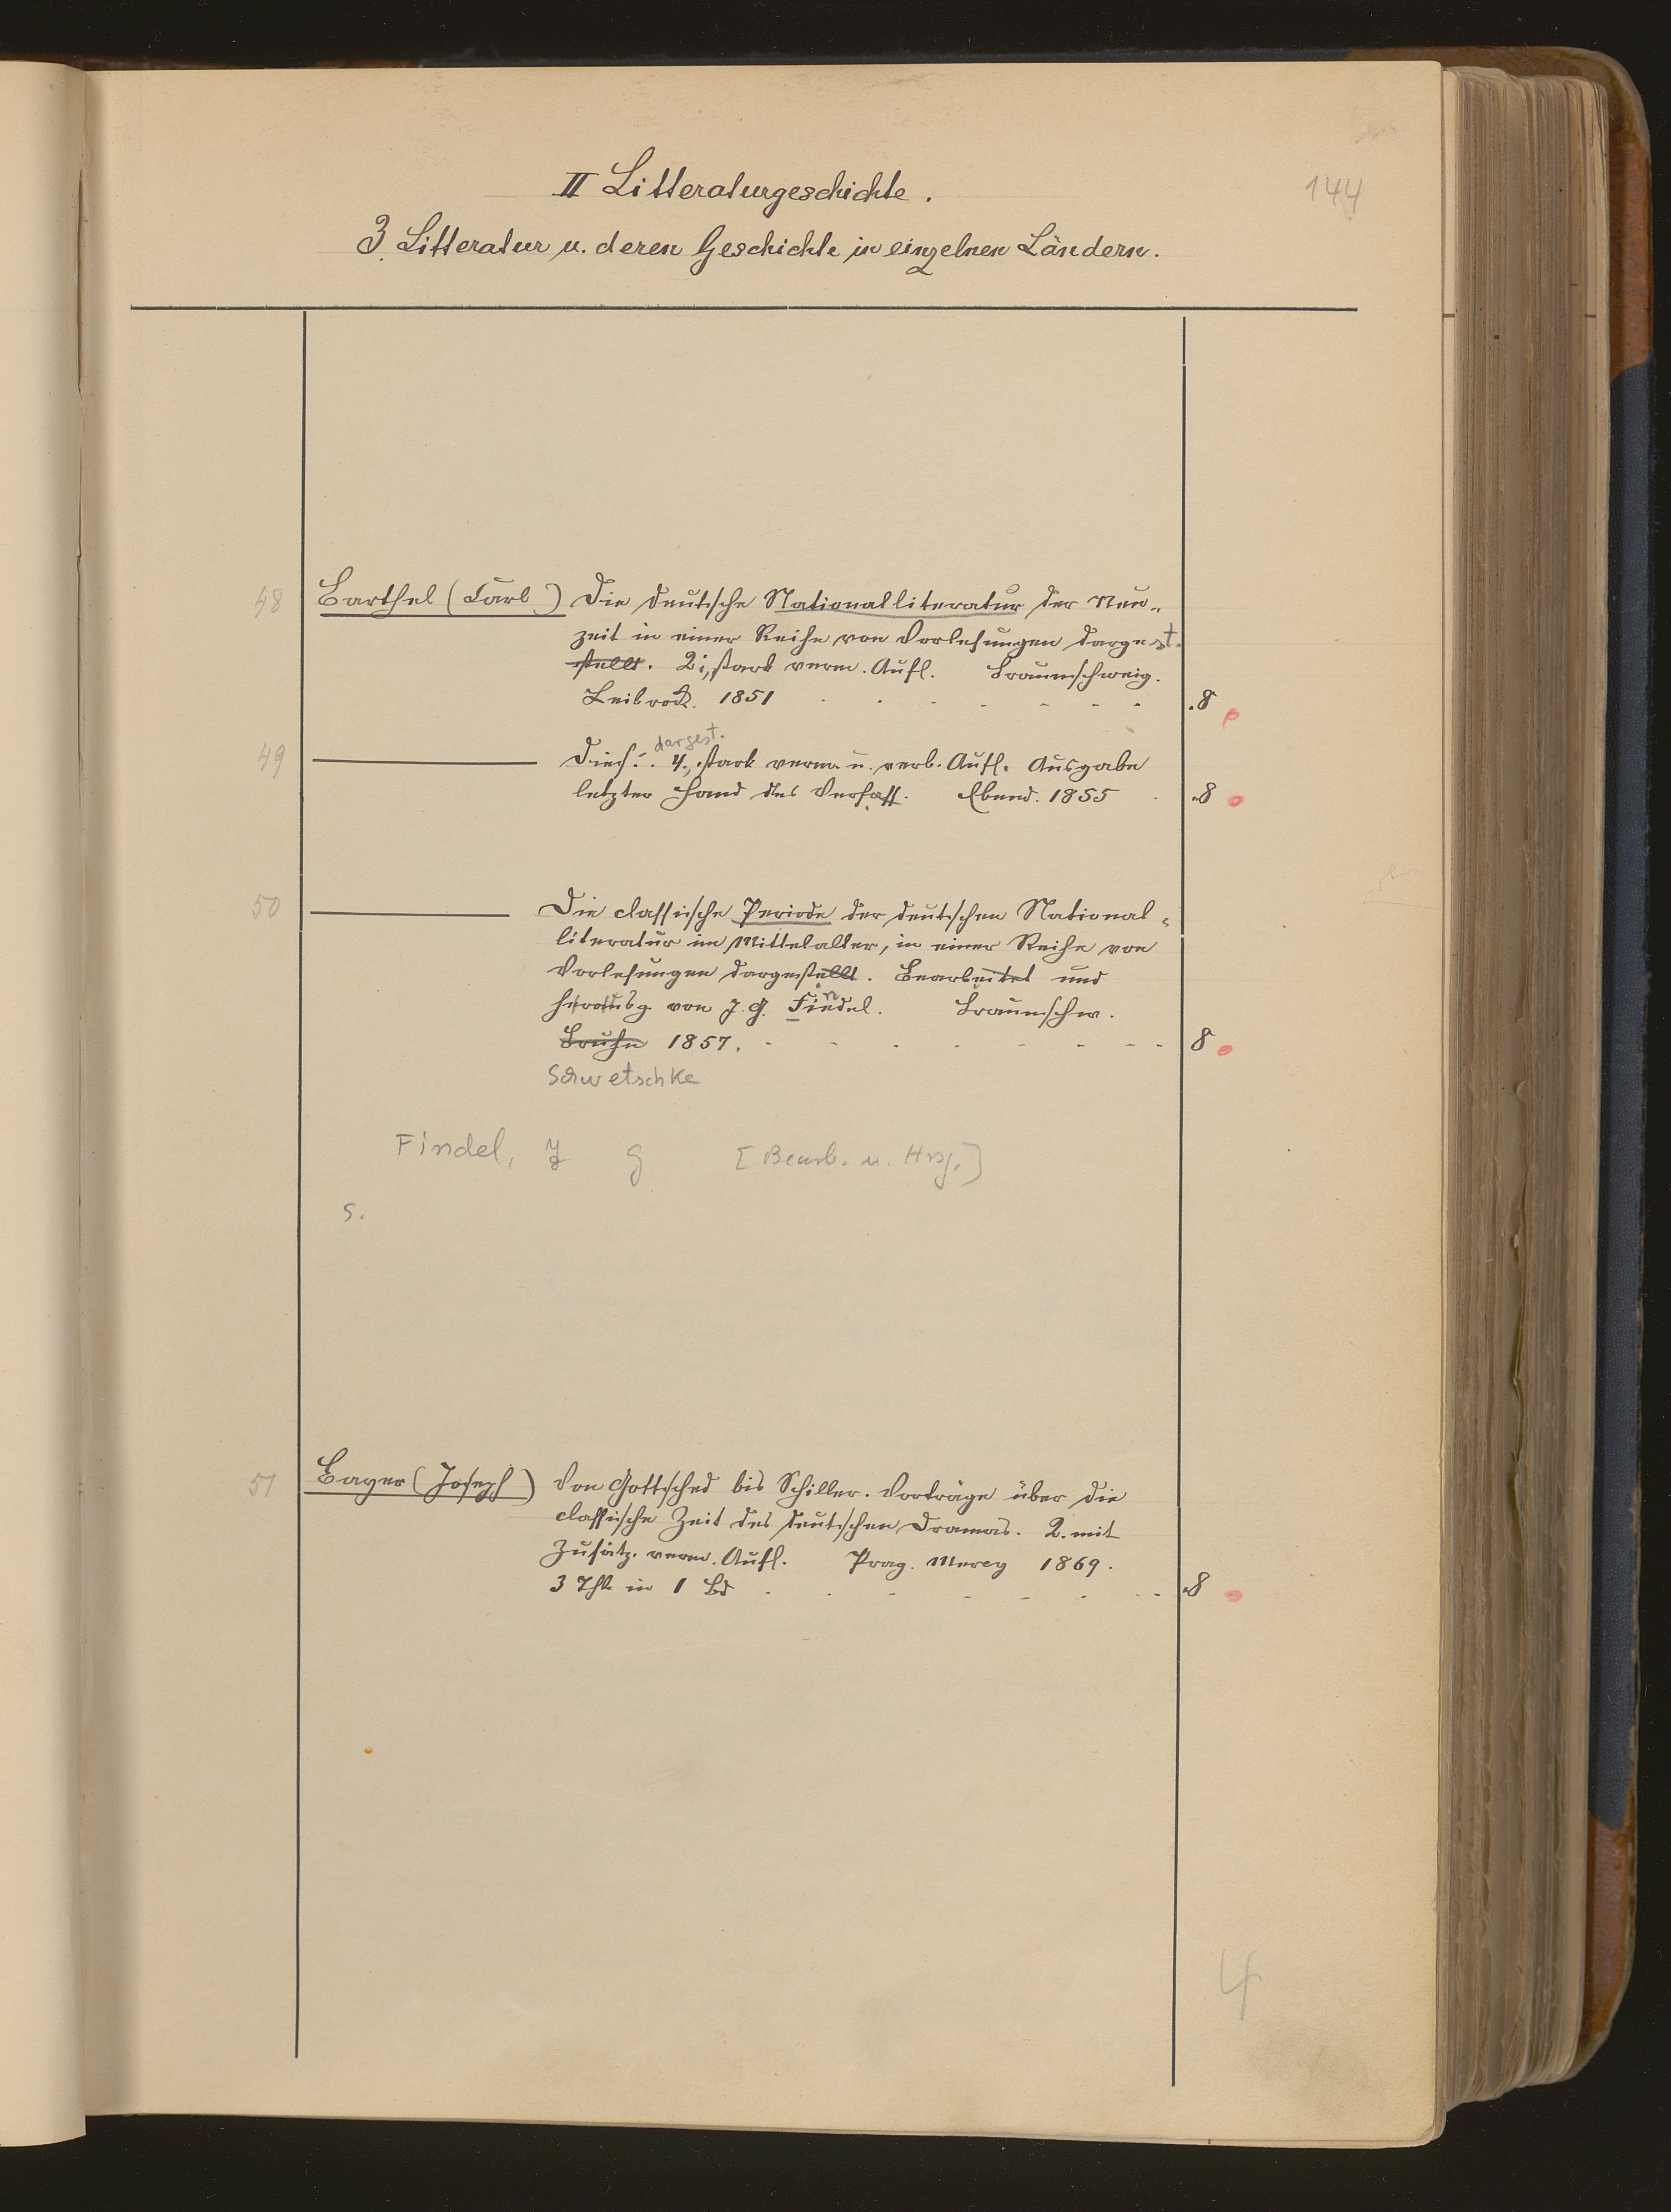 144
II Litteraturgeschichte.
3. Litteratur u. deren Geschichte in einzelnen Ländern.
48 Barthel (Carl) Die deutsche Nationalliteratur der Neu-
zeit in einer Reihe von Vorlesungen dargest.
stellt. 2., stark verm. Aufl. Braunschweig.
Leibrock. 1851 . . . . . . . 8
dargest.
49 ——— Dies. 4., stark verm. u. verb. Aufl. Ausgabe
letzter Hand des Verfass. Ebend. 1855 . 8
50 ——— Die classische Periode der deutschen National-
literatur im Mittelalter, in einer Reihe von
Vorlesungen dargestellt. Bearbeitet und
herausg. von J. G. Findel. Braunschw.
Bruhn 1857. . . . . . . . 8
Schwetschke
Findel, J G [Bearb. u. Hrsg.]
s.
51 Bayer (Joseph) Von Gottsched bis Schiller. Vorträge über die
classische Zeit des deutschen Dramas. 2. mit
Zusätz. verm. Aufl. Prag. Mercy 1869.
3 Thle in 1 Bd . . . . . . . 8
4